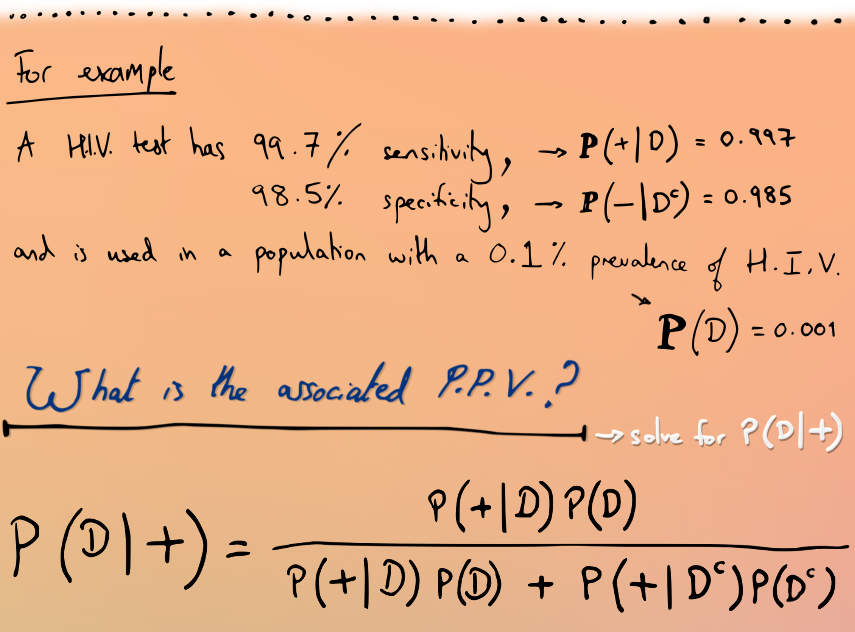 For example
A H.I.V. test has 99.7% sensitivity, → P(+|D) = 0.997
98.5% specificity, → P(−|Dᶜ) = 0.985
and is used in a population with a 0.1% prevalence of H.I.V.
P(D) = 0.001
What is the associated P.P.V.?
→ solve for P(D|+)
P(+|D) P(D)
P(D|+) =
P(+|D) P(D) + P(+|Dᶜ)P(Dᶜ)